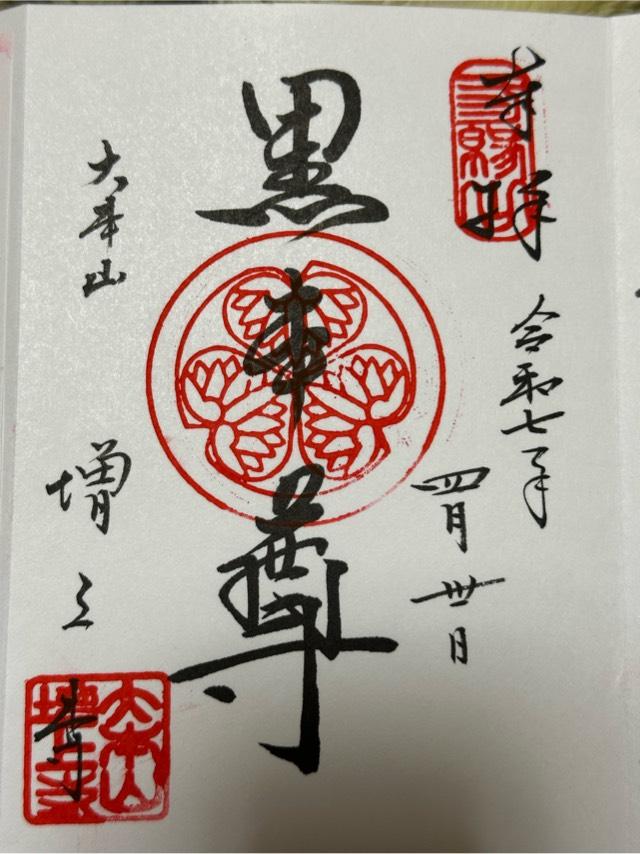 三縁山
奉拝
令和七年
四月卅日
黒本尊
大本山
増上寺
大本山
増上寺